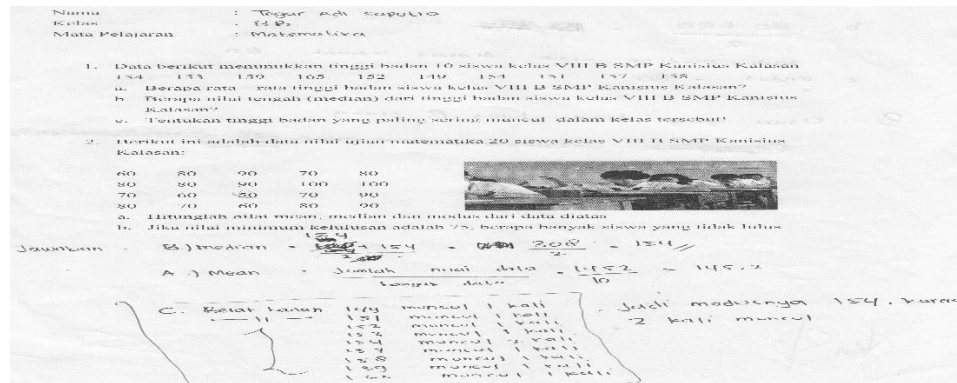 Nama : Tagar Adi Saputro
Kelas : 8 B
Mata Pelajaran : Matematika
1. Data berikut menunjukkan tinggi badan 10 siswa kelas VIII B SMP Kanisius Kalasan
154 153 159 165 152 149 154 151 157 158
a. Berapa rata – rata tinggi badan siswa kelas VIII B SMP Kanisius Kalasan?
b. Berapa nilai tengah (median) dari tinggi badan siswa kelas VIII B SMP Kanisius
Kalasan?
c. Tentukan tinggi badan yang paling sering muncul dalam kelas tersebut!
2. Berikut ini adalah data nilai ujian matematika 20 siswa kelas VIII B SMP Kanisius
Kalasan:
60 80 90 70 80
80 80 90 100 100
70 60 50 70 90
80 70 60 80 90
a. Hitunglah nilai mean, median dan modus dari data diatas
b. Jika nilai minimum kelulusan adalah 75, berapa banyak siswa yang tidak lulus
Jawaban
B.) median = 154 + 154 = 308 = 154 //
2 2
A.) Mean = Jumlah nilai data = 1.452 = 145,2
banyak data 10
C. 149 muncul 1 kali Jadi modusnya 154. karna
151 muncul 1 kali 2 kali muncul
152 muncul 1 kali
153 muncul 1 kali
154 muncul 2 kali
157 muncul 1 kali
158 muncul 1 kali
159 muncul 1 kali
165 muncul 1 kali